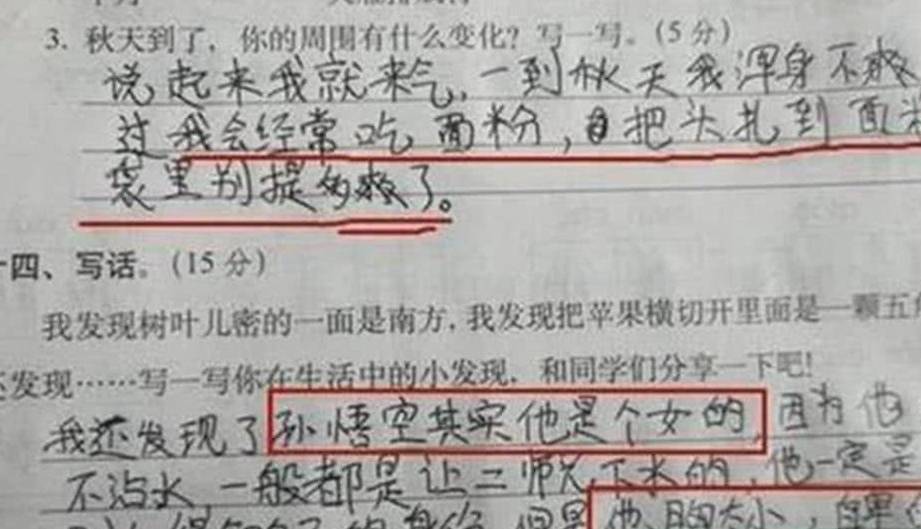 3. 秋天到了，你的周围有什么变化？写一写。（5分）
说起来我就来气，一到秋天我浑身不爽
过我会经常吃面粉，把头扎到面
袋里别提多爽了。
十四、写话。（15分）
我发现树叶儿密的一面是南方，我发现把苹果横切开里面是一颗五
还发现……写一写你在生活中的小发现，和同学们分享一下吧！
我还发现了孙悟空其实他是个女的，因为他
不沾水一般都是让二师兄下水的，他一定是
他胸大小，